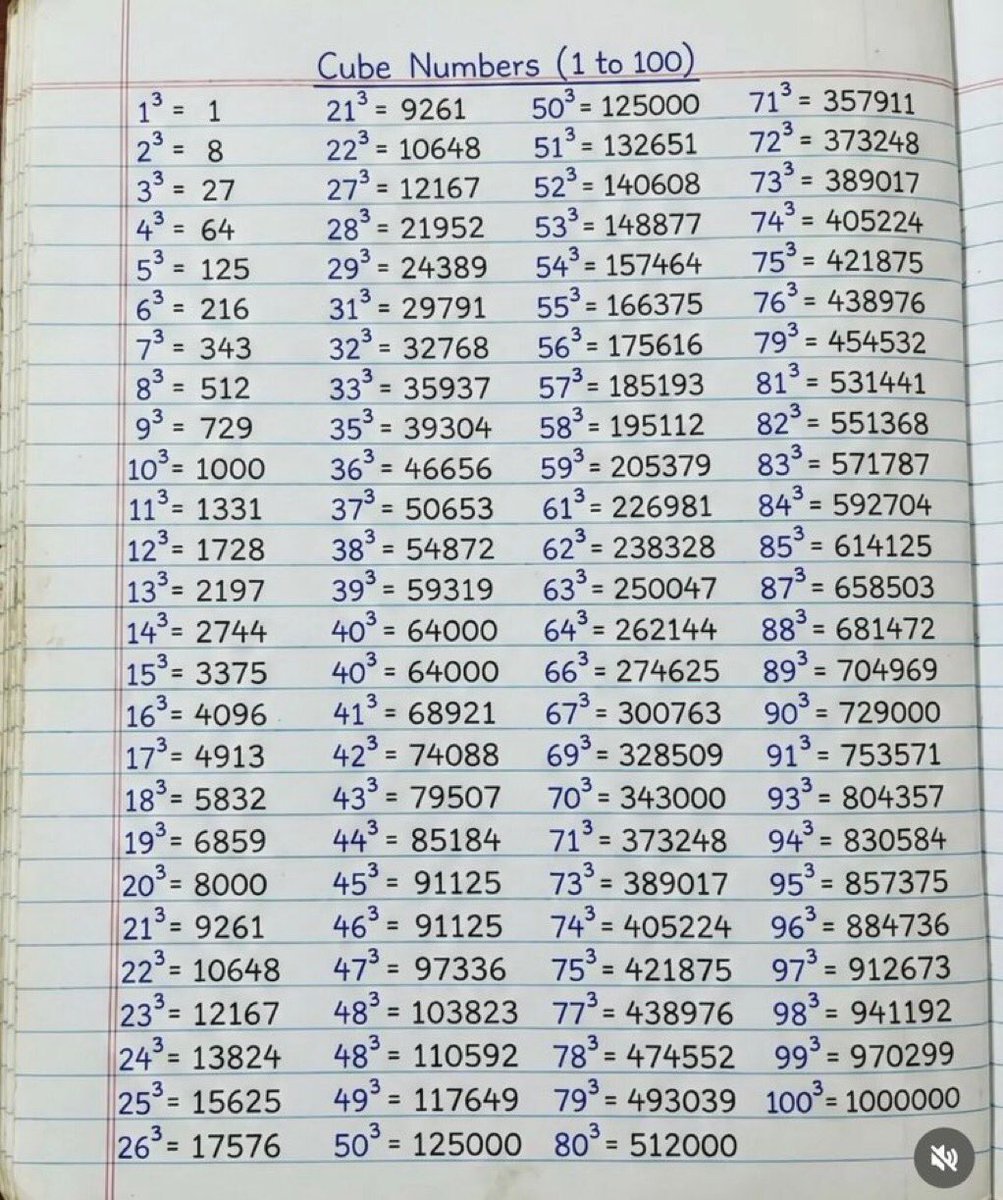 Cube Numbers (1 to 100)
1³ = 1
2³ = 8
3³ = 27
4³ = 64
5³ = 125
6³ = 216
7³ = 343
8³ = 512
9³ = 729
10³ = 1000
11³ = 1331
12³ = 1728
13³ = 2197
14³ = 2744
15³ = 3375
16³ = 4096
17³ = 4913
18³ = 5832
19³ = 6859
20³ = 8000
21³ = 9261
22³ = 10648
23³ = 12167
24³ = 13824
25³ = 15625
26³ = 17576
21³ = 9261
22³ = 10648
27³ = 12167
28³ = 21952
29³ = 24389
31³ = 29791
32³ = 32768
33³ = 35937
35³ = 39304
36³ = 46656
37³ = 50653
38³ = 54872
39³ = 59319
40³ = 64000
40³ = 64000
41³ = 68921
42³ = 74088
43³ = 79507
44³ = 85184
45³ = 91125
46³ = 91125
47³ = 97336
48³ = 103823
48³ = 110592
49³ = 117649
50³ = 125000
50³ = 125000
51³ = 132651
52³ = 140608
53³ = 148877
54³ = 157464
55³ = 166375
56³ = 175616
57³ = 185193
58³ = 195112
59³ = 205379
61³ = 226981
62³ = 238328
63³ = 250047
64³ = 262144
66³ = 274625
67³ = 300763
69³ = 328509
70³ = 343000
71³ = 373248
73³ = 389017
74³ = 405224
75³ = 421875
77³ = 438976
78³ = 474552
79³ = 493039
80³ = 512000
71³ = 357911
72³ = 373248
73³ = 389017
74³ = 405224
75³ = 421875
76³ = 438976
79³ = 454532
81³ = 531441
82³ = 551368
83³ = 571787
84³ = 592704
85³ = 614125
87³ = 658503
88³ = 681472
89³ = 704969
90³ = 729000
91³ = 753571
93³ = 804357
94³ = 830584
95³ = 857375
96³ = 884736
97³ = 912673
98³ = 941192
99³ = 970299
100³ = 1000000